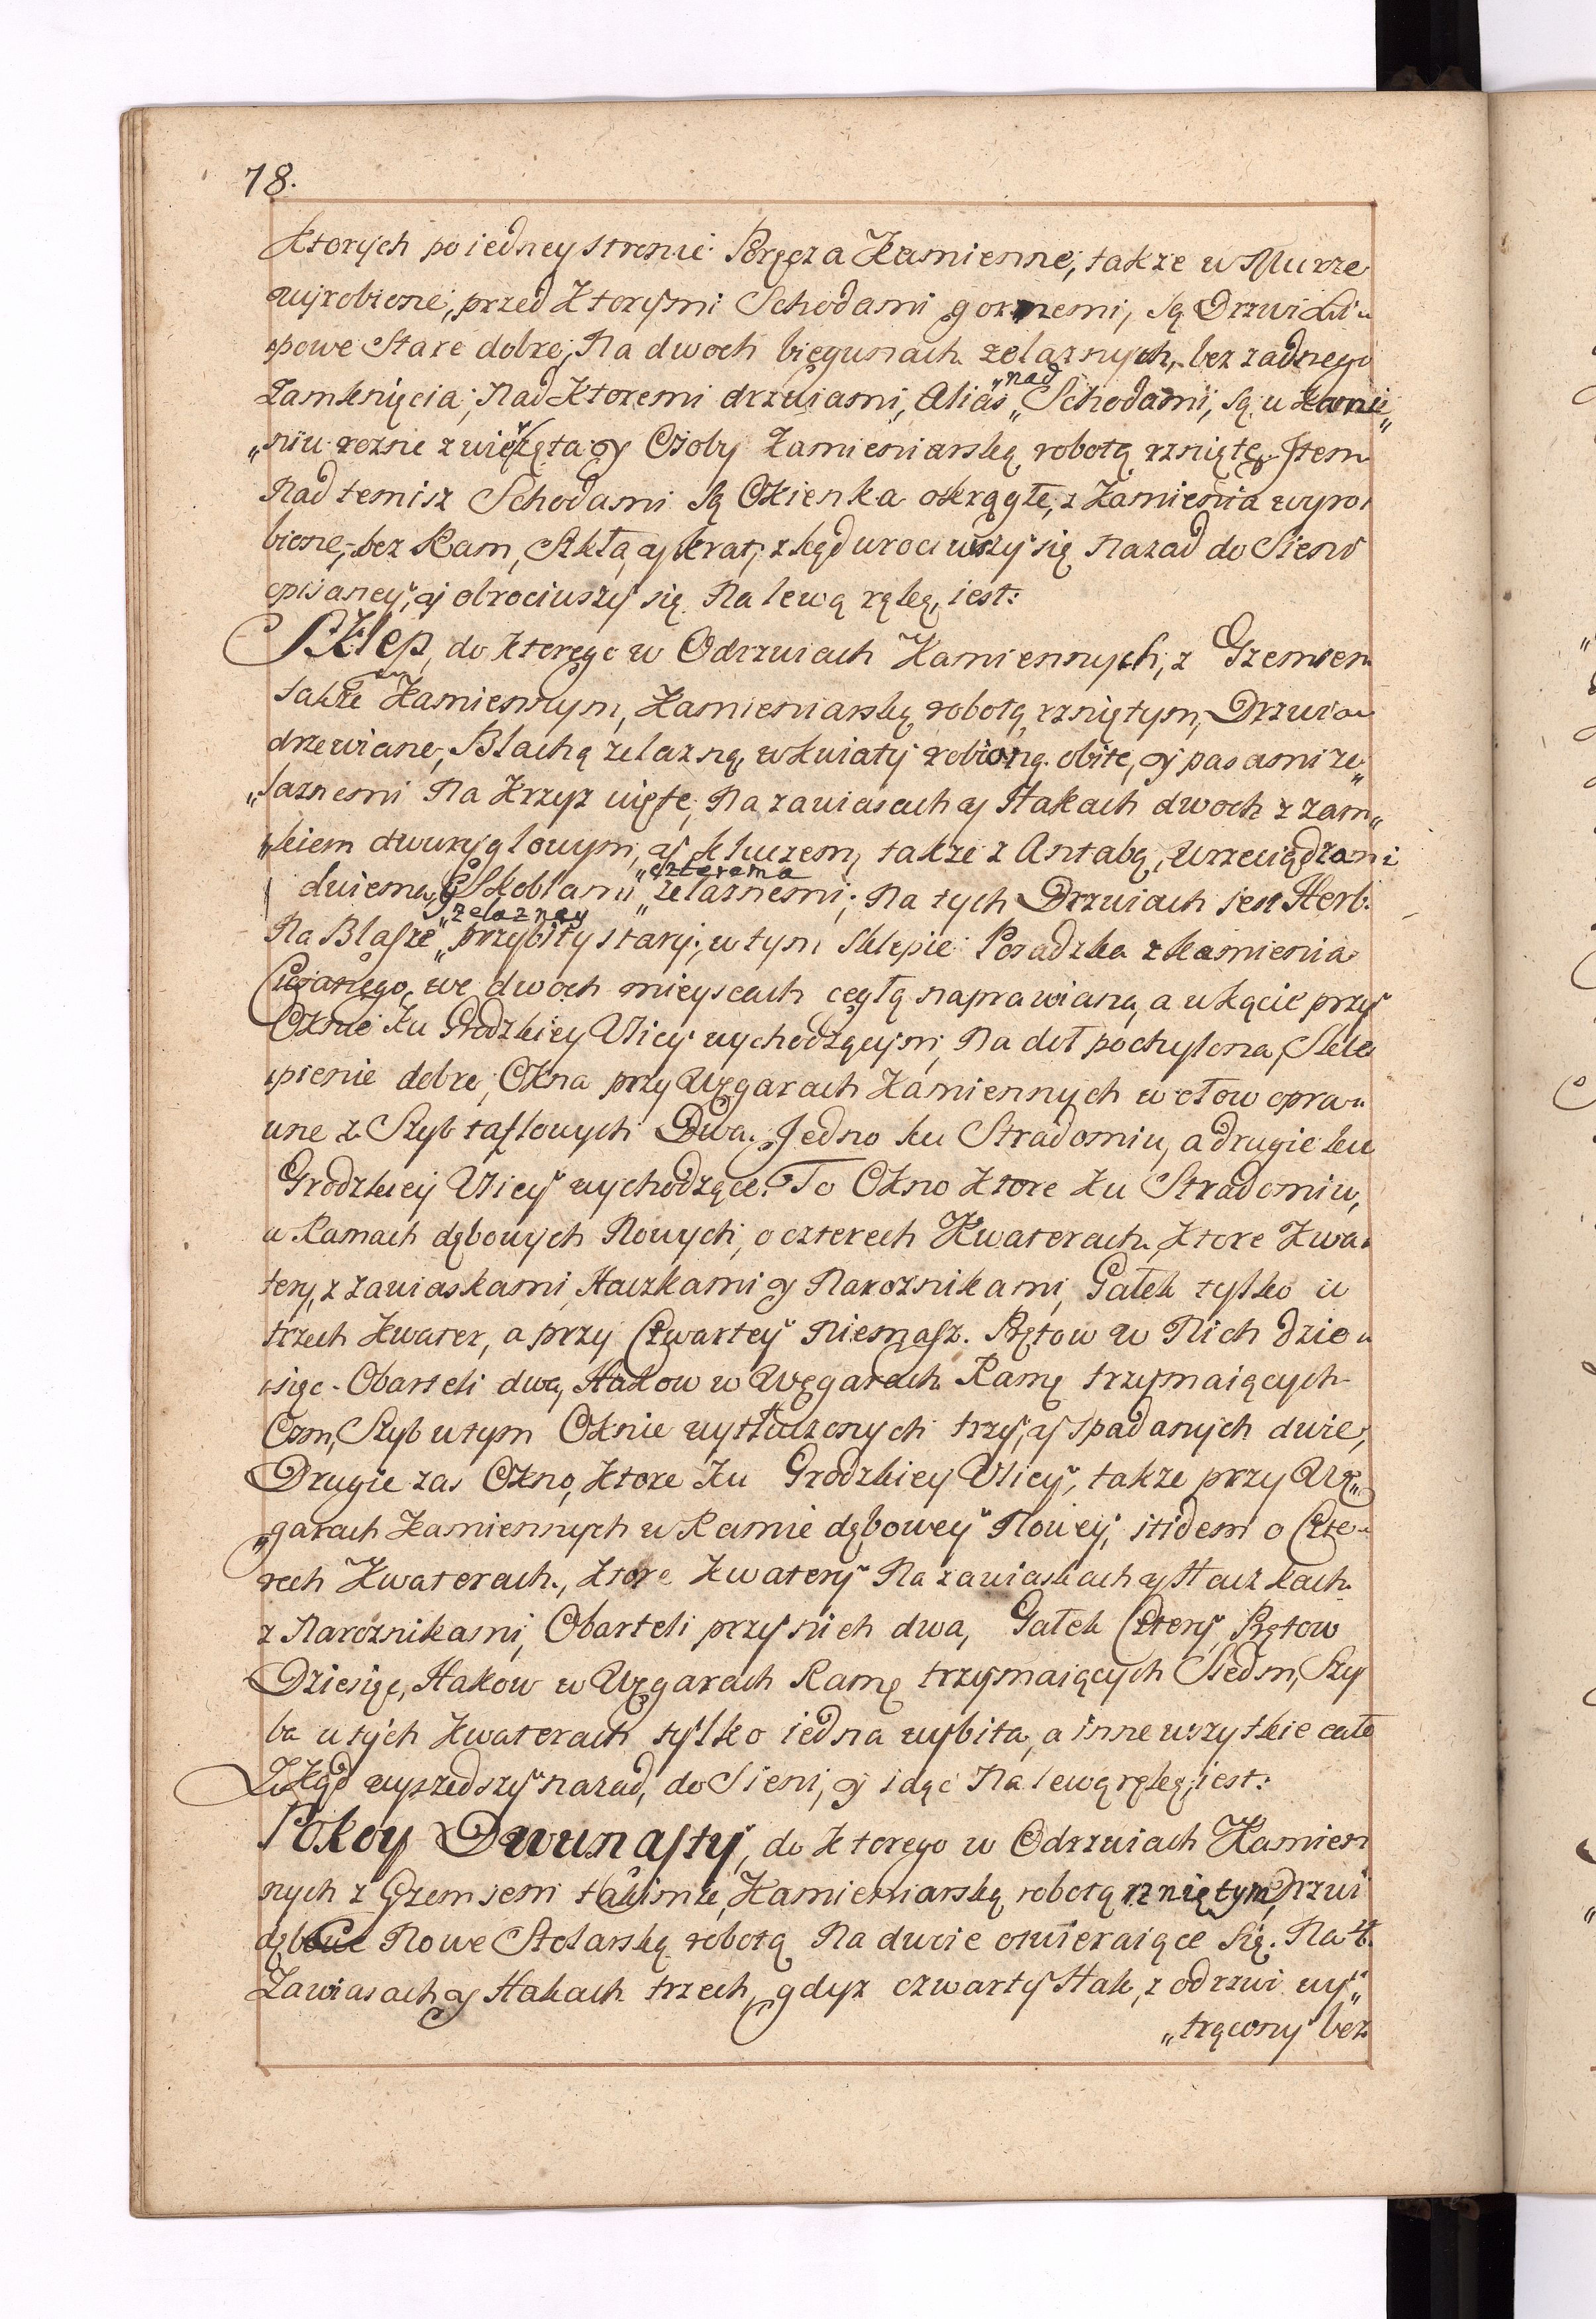 78.
Ktorych po iedney stronie Poręcza Kamienne, także w Murze
wyrobione, przed Ktorymi Schodami gornemi, są Drzwi Li„
„powe Stare dobre, Na dwoch biegunach zelaznych, bez zadnego
Zamknięcia; Nad Ktoremi drzwiami, Alias „nad„ Schodami, są w Kamie„
„niu rozne zwięrzęta y Osoby Kamieniarską robotą rznięte. Item
Nad temisz Schodami są Okienka okrągłe, z Kamienia wyro„
bione, bez Ram, Szkła, y krat; zkąd wrociwszy się nazad do Sieni
opisaney, y obrociwszy się Na lewą rękę, iest:
Sklep, do ktorego w Odrzwiach Kamiennych, z Gzemsem
także Kamiennym, Kamieniarską robotą rzniętym, Drzwi
drzewiane, Blachą zelazną, w kwiaty robioną obite, y pasami ze„
„laznemi Na Krzyz więte, Na zawiasach y Hakach dwoch z zam„
„kiem dwuryglowym, y kluczem, także z Antabą, Wrzeciądzami
dwiema, y Skoblami „czterema„ zelaznemi; Na tych Drzwiach jest Herb
Na Blasze „zelazney„ przybity stary; w tym Sklepie Posadzka z kamienia
Ciosanego, we dwoch mieyscach cegłą naprawiana, a w kącie przy
Oknie ku Grodzkiey Vlicy wychodzącym, Na doł pochylona, Skle
„pienie dobre, Okna przy Węgarach Kamiennych w ołow opra„
wne z Szyb taflowych Dwa. Jedno ku Stradomiu, a drugie ku
Grodzkiey Vlicy wychodzące. To Okno Ktore Ku Stradomiu,
w Ramach dębowych Nowych, o czterech Kwaterach, Ktore Kwa„
tery, z zawiaskami, Haczkami y Naroznikami, Gałek tylko u
trzech Kwater, a przy Czwartey Niemasz. Prętow w Nich dzie„
„sięc. Obarteli dwa, Hakow w Węgarach Ramę trzymaiących
Osm, Szyb w tym Oknie wytłuczonych trzy, y spadanych dwie,
Drugie zas Okno, Ktore Ku Grodzkiey Vlicy, także przy Wę„
„garach Kamiennych w Ramie dębowey Nowey, itidem o Czte„
rech Kwaterach, Ktore Kwatery Na zawiaskach y Haczkach
z Naroznikami, Obarteli przy nich dwa, Gałek Cztery, Prętow
Dziesięc, Hakow w Węgarach Ramę trzymaiących Siedm, Szy
ba w tych Kwaterach tylko iedna wybita, a inne wszytkie całe
Zkąd wyszedszy nazad, do Sieni, y idąc Na lewą rękę, iest:
Pokoy Dwunasty, do ktorego w Odrzwiach Kamien
nych z Gzemsem takimże, Kamieniarską robotą rzniętym, Drzwi
dębowe Nowe Stolarską robotą Na dwie otwieraiące się. Na
Zawiasach y Hakach trzech, gdyz czwarty Hak, z odrzwi wy„
„trącony bez